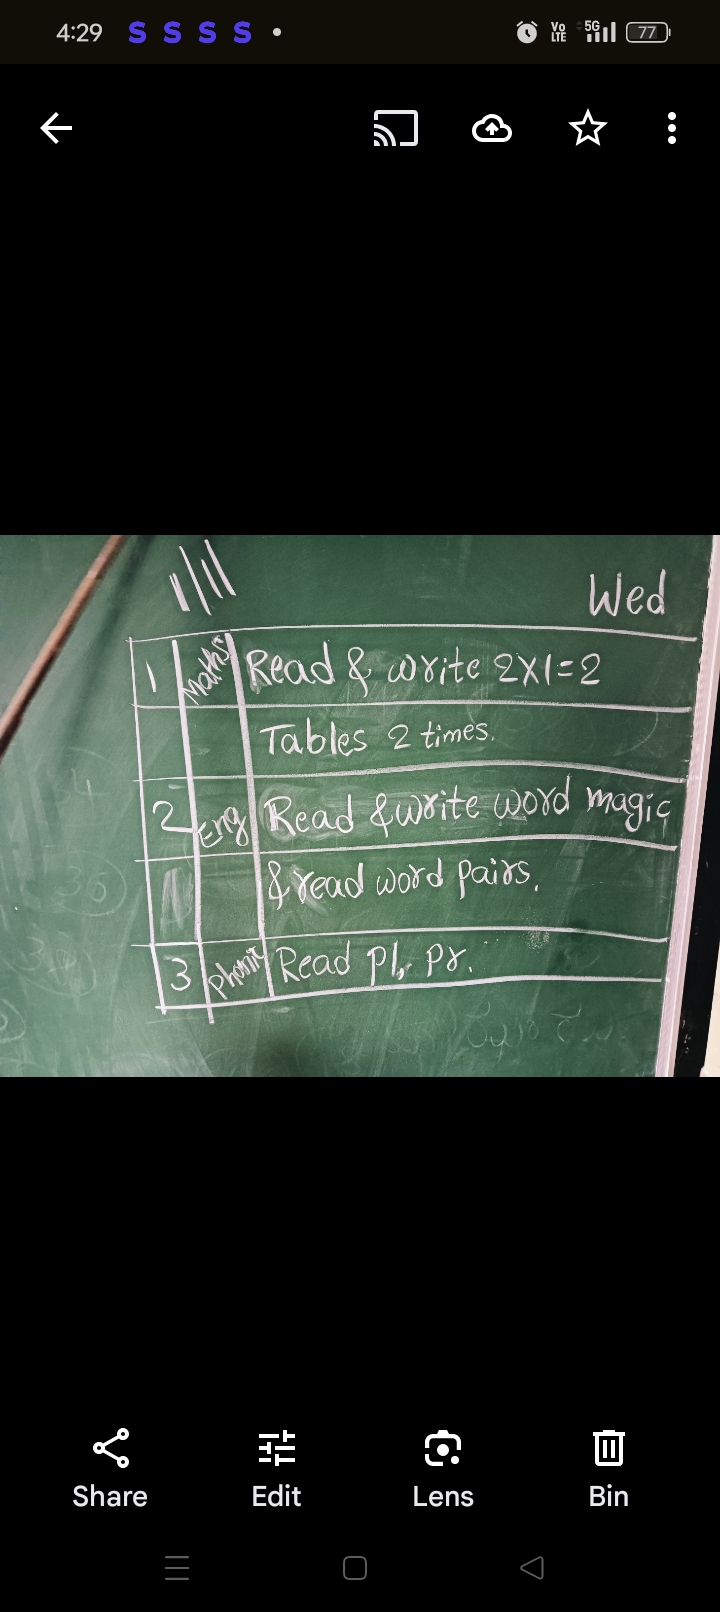 4:29 S S S S VoLTE 5G 77
Wed
1 Maths Read & write 2x1=2
Tables 2 times.
2 Eng Read & write word magic
& read word pairs.
3 Phonic Read pl, pr.
Share Edit Lens Bin